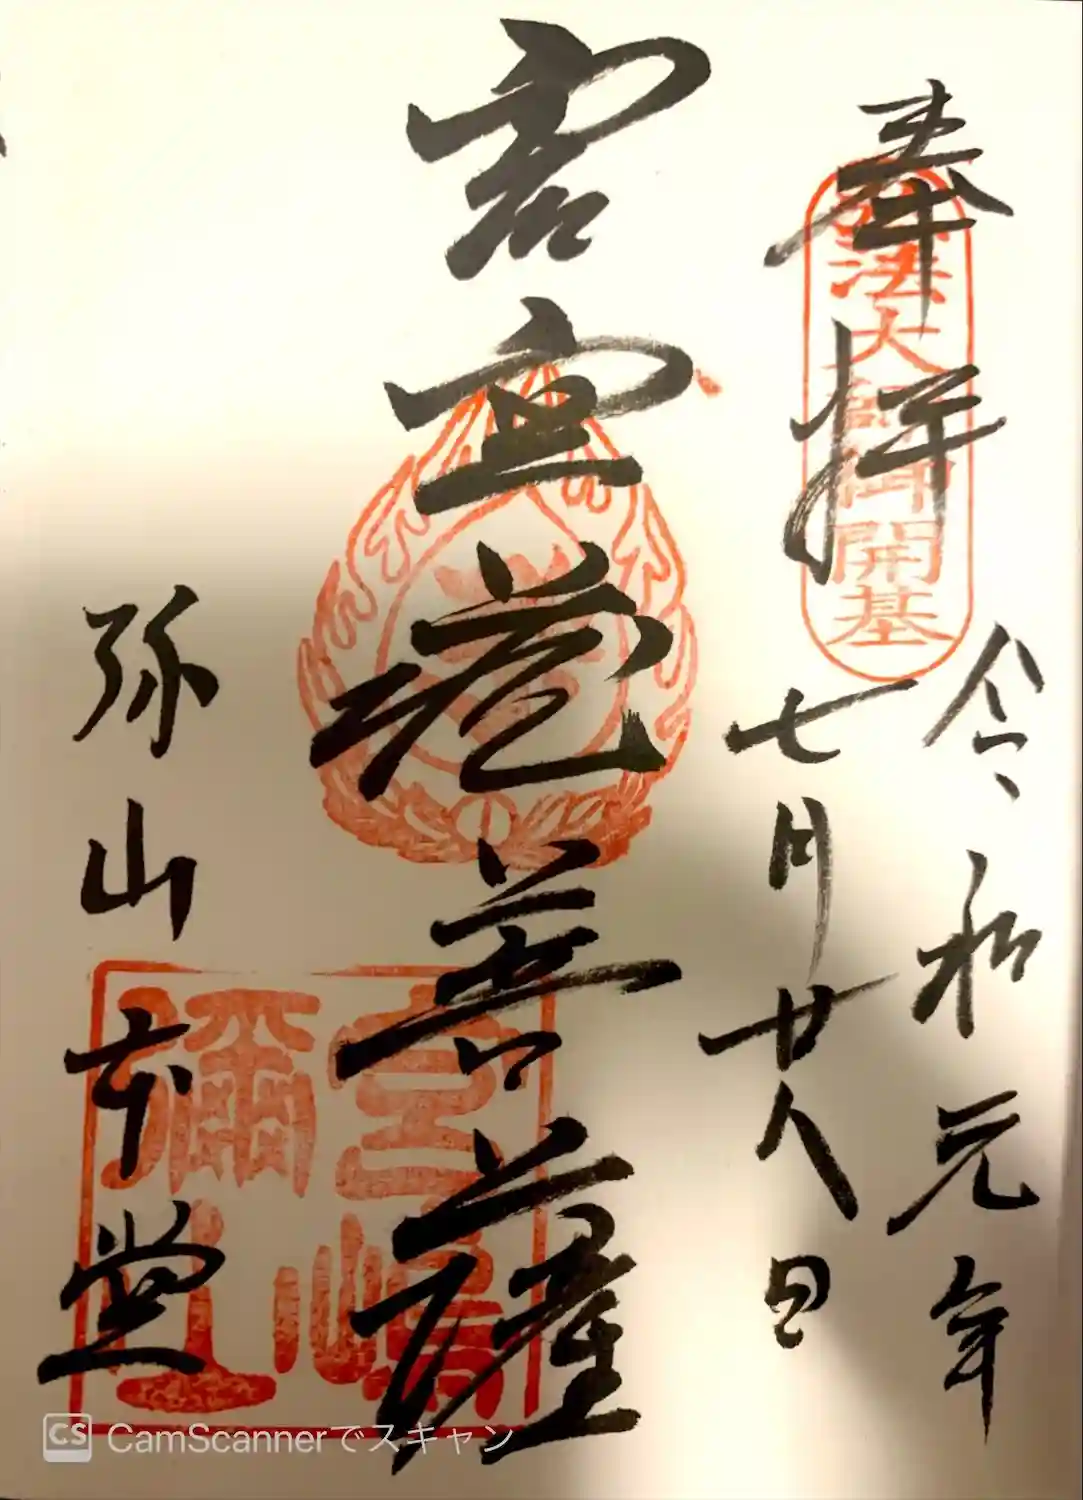 奉拝
弘法大師御開基
令和元年
七月廿八日
虚空蔵菩薩
宮島彌山
弥山本堂
CS CamScannerでスキャン